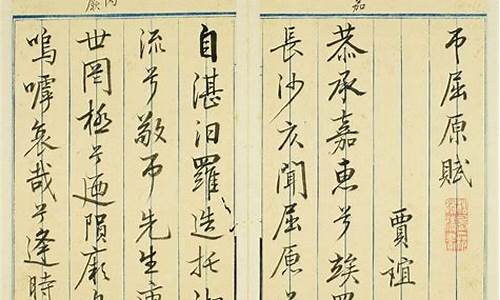 嘉
弔屈原賦
賈誼
恭承嘉惠兮竢罪
長沙仄聞屈原兮
自湛汨羅造托湘
流兮敬弔先生遭
世罔極兮迺隕厥身
嗚嘑哀哉兮逢時